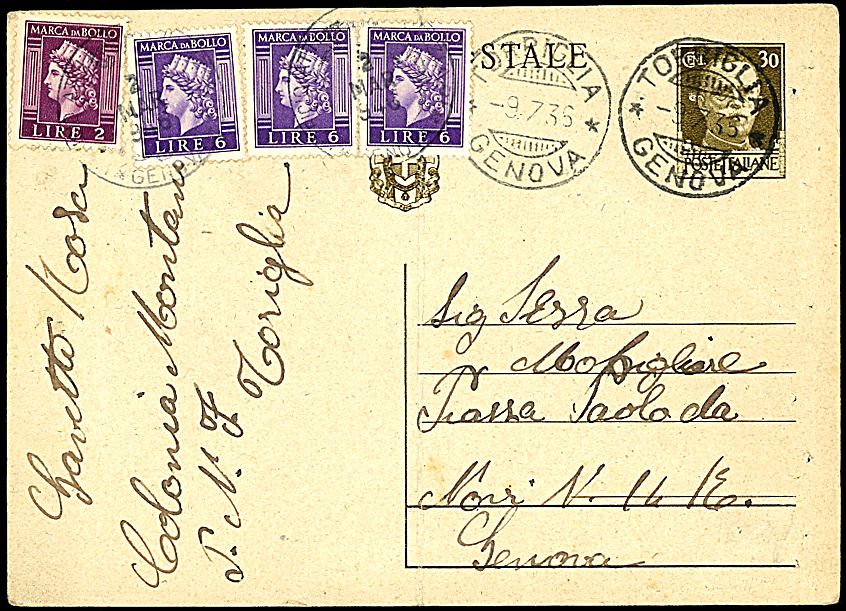 MARCA DA BOLLO
LIRE 2
MARCA DA BOLLO
LIRE 6
MARCA DA BOLLO
LIRE 6
MARCA DA BOLLO
LIRE 6
STALE
TORRIGLIA
-9.7.36
GENOVA
TORRIGLIA
GENOVA
30
POSTE ITALIANE
2
MAR
GENOVA
2
MAR
Colonia Montana
P. N. F. Toriglia
Sig Serra
Piazza Paolo da
Novi N. 14 E.
Genova